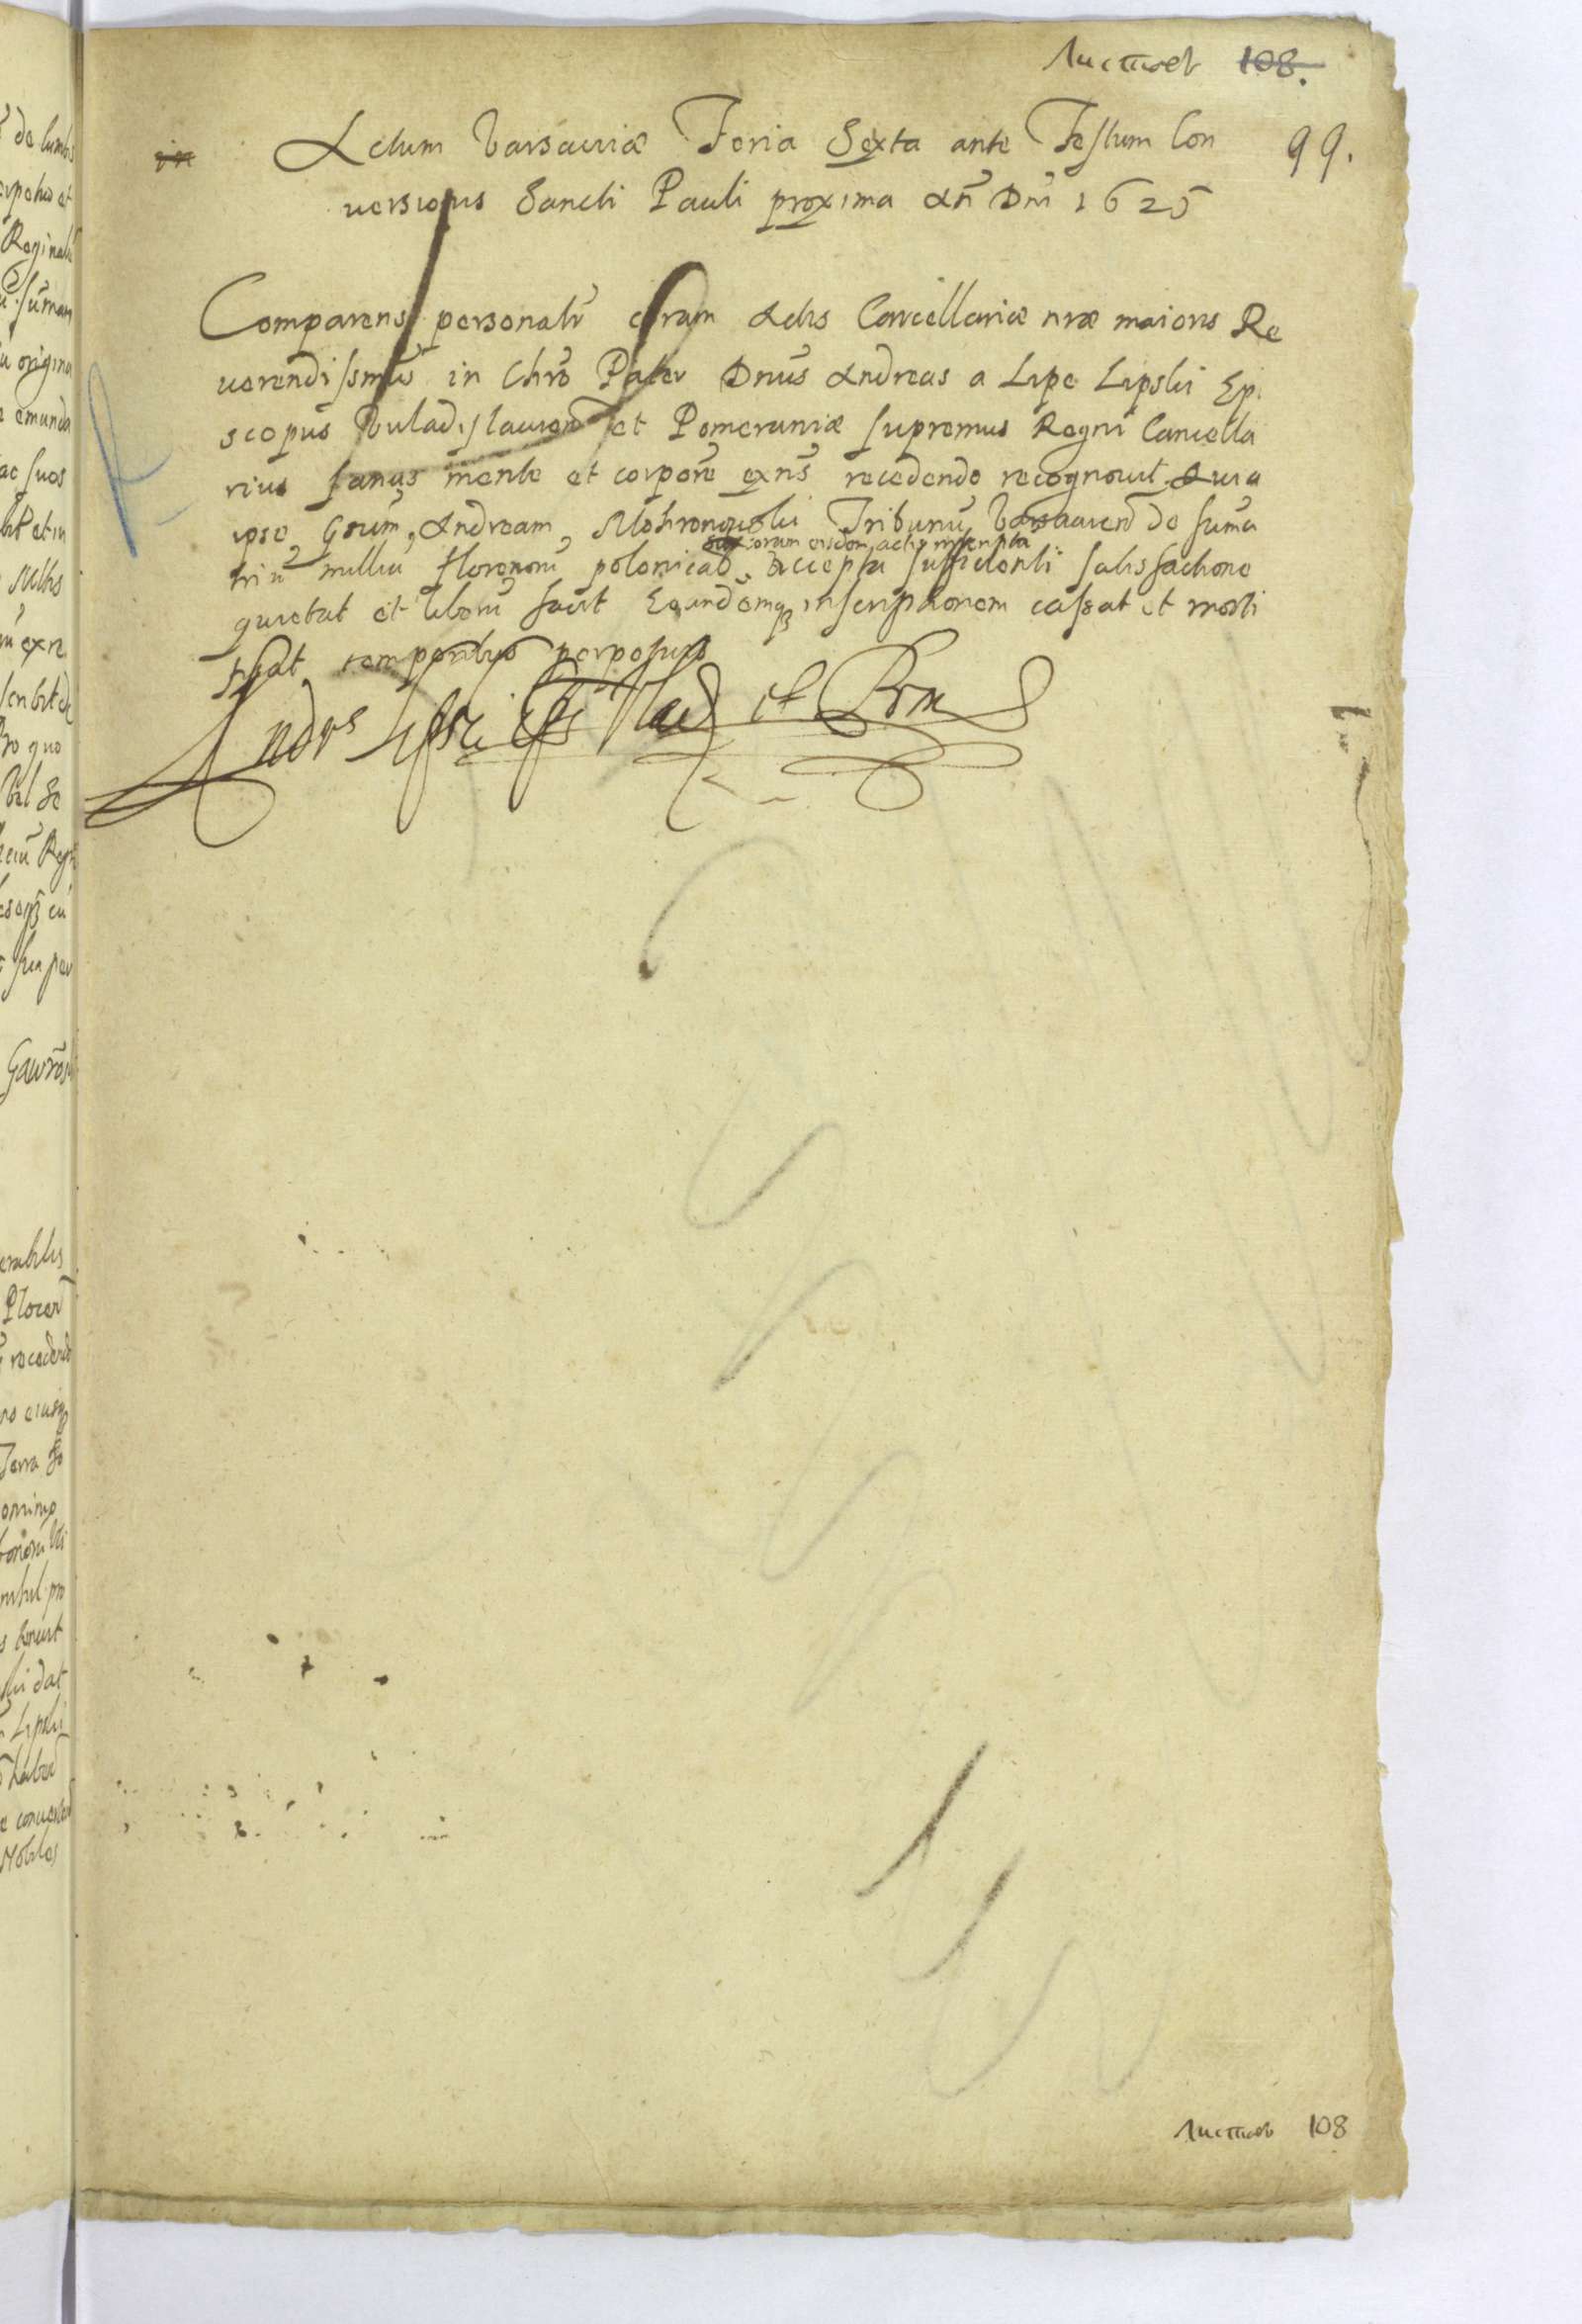 Листов 108.
99.
Actum Varsauiæ Feria Sexta ante Festum Con
uersionis Sancti Pauli proxima An̄ Dni 1625
Comparens personalr̄ coram Actis Cancellariæ nræ maioris Re
uerendissmus in Chro Pater Dnus Andreas a Lipe Lipski Epi
scopus Wladislauien̄ et Pomeraniæ supremus Regni Cancella
rius sanus mente et corpore exn̄s recedendo recognouit Quia
ipse Gsum Andream Mokronowski Tribunū Varsauien̄ de suma
coram eisdem actis inscripta
triu milliu florenorū polonical accepta sufficienti satisfactione
quietat et liberū facit Eandemq inscriptionem cassat et morti
ficat temporibus perpetuis
Andrs Lipski Eps Vlad et Pom
Листов 108